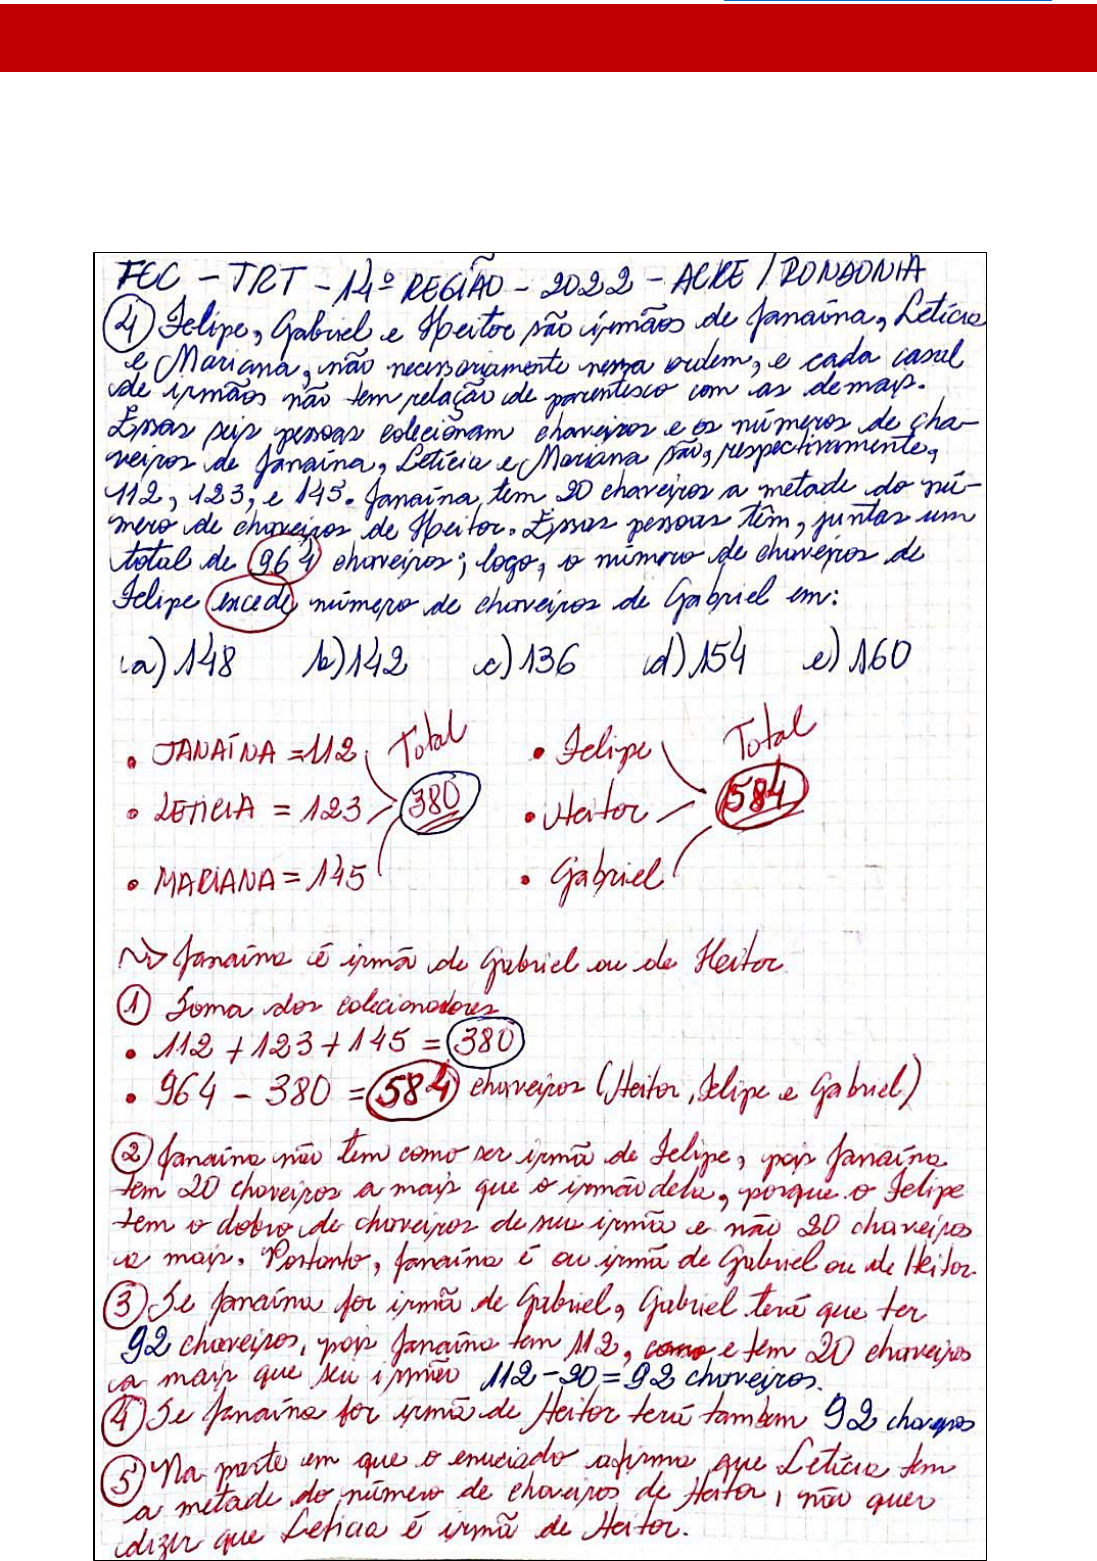 FCC - TRT - 14º REGIÃO - 2022 - ACRE / RONDONIA
4 Felipe, Gabriel e Heitor são irmãos de Janaína, Letícia
e Mariana, não necessariamente nessa ordem, e cada casal
de irmãos não tem relação de parentesco com as demais.
Essas seis pessoas colecionam chaveiros e os números de cha-
veiros de Janaína, Letícia e Mariana são, respectivamente,
112, 123, e 145. Janaína tem 20 chaveiros a metade do nú-
mero de chaveiros de Heitor. Essas pessoas têm, juntas um
total de 964 chaveiros; logo, o número de chaveiros de
Felipe excede número de chaveiros de Gabriel em:
a) 148 b) 142 c) 136 d) 154 e) 160
• JANAÍNA = 112 Total • Felipe Total
• LETICIA = 123 380 • Heitor 584
• MARIANA = 145 • Gabriel
~> Janaína é irmã de Gabriel ou de Heitor
1 Soma dos colecionadores
• 112 + 123 + 145 = 380
• 964 - 380 = 584 chaveiros (Heitor, Felipe e Gabriel)
2 Janaína não tem como ser irmã de Felipe, pois Janaína
tem 20 chaveiros a mais que o irmão dela, porque o Felipe
tem o dobro de chaveiros de sua irmã e não 20 chaveiros
a mais. Portanto, Janaína é ou irmã de Gabriel ou de Heitor.
3 Se Janaína for irmã de Gabriel, Gabriel terá que ter
92 chaveiros, pois Janaína tem 112, e tem 20 chaveiros
a mais que seu irmão 112-20 = 92 chaveiros.
4 Se Janaína for irmã de Heitor terá tambem 92 chaveiros
5 Na parte em que o enuciado afirma que Letícia tem
a metade do número de chaveiros de Heitor, não quer
dizer que Leticia é irmã de Heitor.